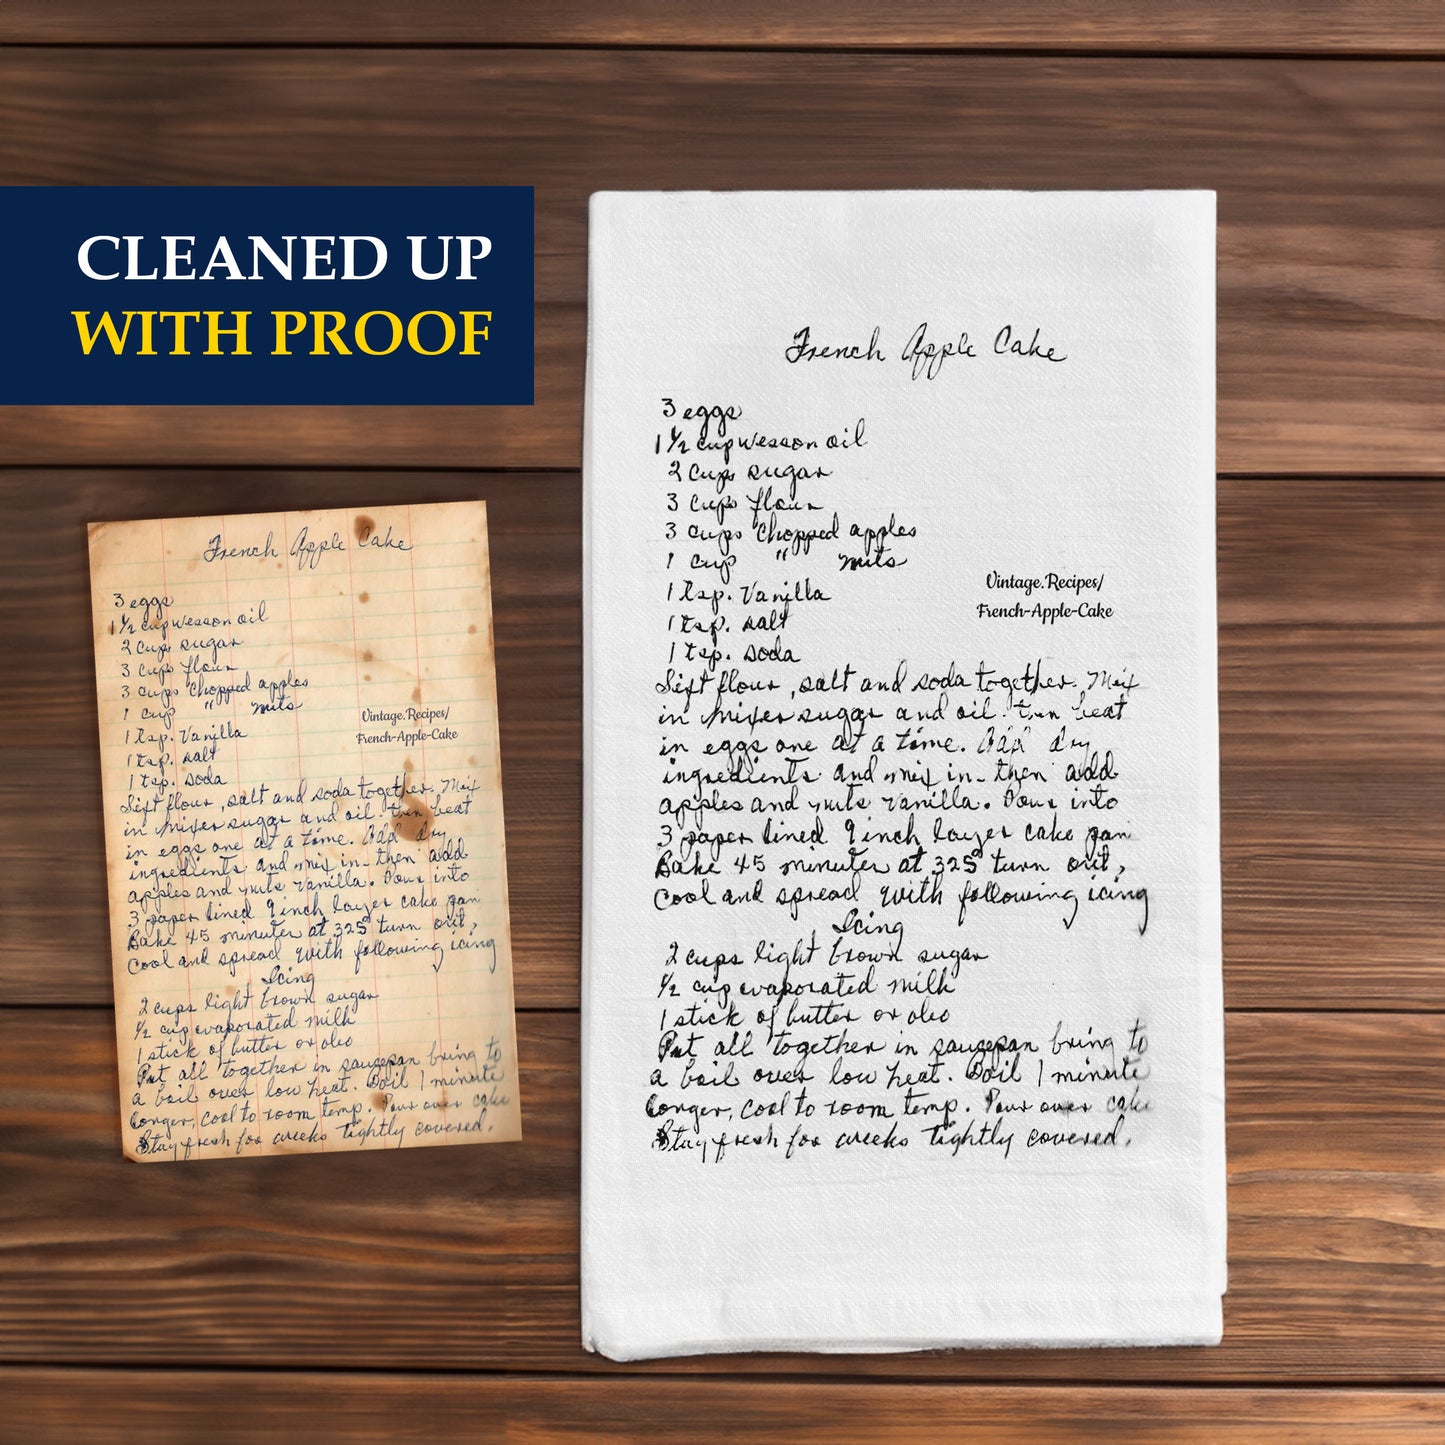 CLEANED UP
WITH PROOF
French Apple Cake
3 eggs
1 1/2 cup wesson oil
2 cups sugar
3 cups flour
3 cups chopped apples
1 cup " nuts
1 tsp. Vanilla
1 tsp. salt
1 tsp. soda
Vintage.Recipes/
French-Apple-Cake
Sift flour, salt and soda together. Mix
in mixer sugar and oil. then beat
in eggs one at a time. Add dry
ingredients and mix in - then add
apples and nuts vanilla. Pour into
3 paper lined 9 inch layer cake pan
Bake 45 minutes at 325° turn out,
Cool and spread with following icing
Icing
2 cups light brown sugar
1/2 cup evaporated milk
1 stick of butter or oleo
Put all together in saucepan bring to
a boil over low heat. Boil 1 minute
longer, Cool to room temp. Pour over cake
Stay fresh for weeks tightly covered.
French Apple Cake
3 eggs
1 1/2 cup wesson oil
2 cups sugar
3 cups flour
3 cups chopped apples
1 cup " nuts
1 tsp. Vanilla
1 tsp. salt
1 tsp. soda
Vintage.Recipes/
French-Apple-Cake
Sift flour, salt and soda together. Mix
in mixer sugar and oil. then beat
in eggs one at a time. Add dry
ingredients and mix in - then add
apples and nuts vanilla. Pour into
3 paper lined 9 inch layer cake pan
Bake 45 minutes at 325° turn out,
Cool and spread with following icing
Icing
2 cups light brown sugar
1/2 cup evaporated milk
1 stick of butter or oleo
Put all together in saucepan bring to
a boil over low heat. Boil 1 minute
longer, Cool to room temp. Pour over cake
Stay fresh for weeks tightly covered.